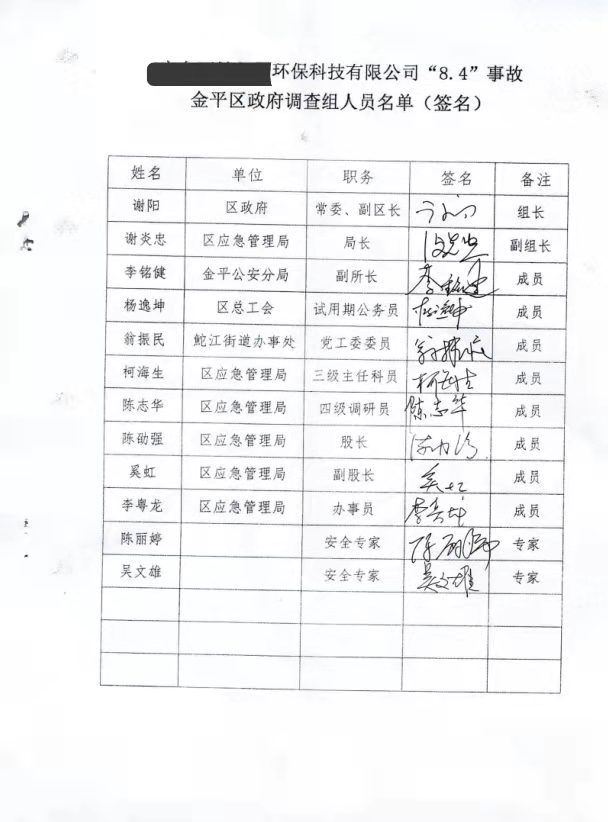 环保科技有限公司“8.4”事故
金平区政府调查组人员名单（签名）
姓名 单位 职务 签名 备注
谢阳 区政府 常委、副区长 组长
谢炎忠 区应急管理局 局长 副组长
李铭健 金平公安分局 副所长 李铭健 成员
杨逸坤 区总工会 试用期公务员 杨逸坤 成员
翁振民 鮀江街道办事处 党工委委员 翁振民 成员
柯海生 区应急管理局 三级主任科员 柯海生 成员
陈志华 区应急管理局 四级调研员 陈志华 成员
陈劭强 区应急管理局 股长 成员
奚虹 区应急管理局 副股长 奚虹 成员
李粤龙 区应急管理局 办事员 成员
陈丽婷 安全专家 陈丽婷 专家
吴文雄 安全专家 吴文雄 专家